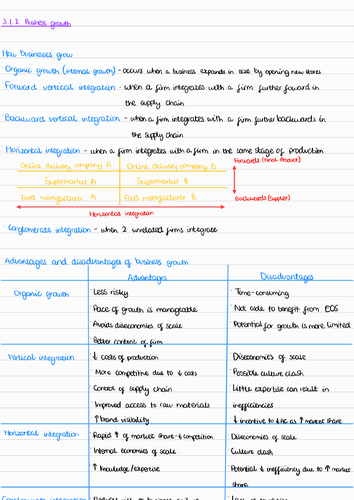 3.1.2 Business growth
How businesses grow
Organic growth (internal growth) - occurs when a business expands in size by opening new stores
Forward vertical integration - when a firm integrates with a firm further foward in
the supply chain
Backward vertical integration - when a firm integrates with a firm further backwards in
the supply chain
Horizontal integration - when a firm integrates with a firm in the same stage of production
Online delivery company A Online delivery company B Forwards (Final Product)
Supermarket A Supermarket B
Food manufacturer A Food manufacturer B Backwards (Supplier)
Horizontal integration
Conglomerate integration - when 2 unrelated firms integrate
Advantages and disadvantages of business growth
Advantages Disadvantages
Organic growth · Less risky · Time-consuming
Pace of growth is manageable · Not able to benefit from EOS
Avoids diseconomies of scale Potential for growth is more limited
Better control of firm
Vertical integration ↓ costs of production Diseconomies of scale
More competitive due to ↓ costs Possible culture clash
Control of supply chain Little expertise can result in
Improved access to raw materials inefficiencies
↑ brand visibility ↓ incentive to ↓AC as ↑ market share
Horizontal integration Rapid ↑ of market share ↓ competition Diseconomies of scale
Internal economies of scale Culture clash
↑ knowledge/expertise Potential ↓ inefficiency due to ↑ market
share